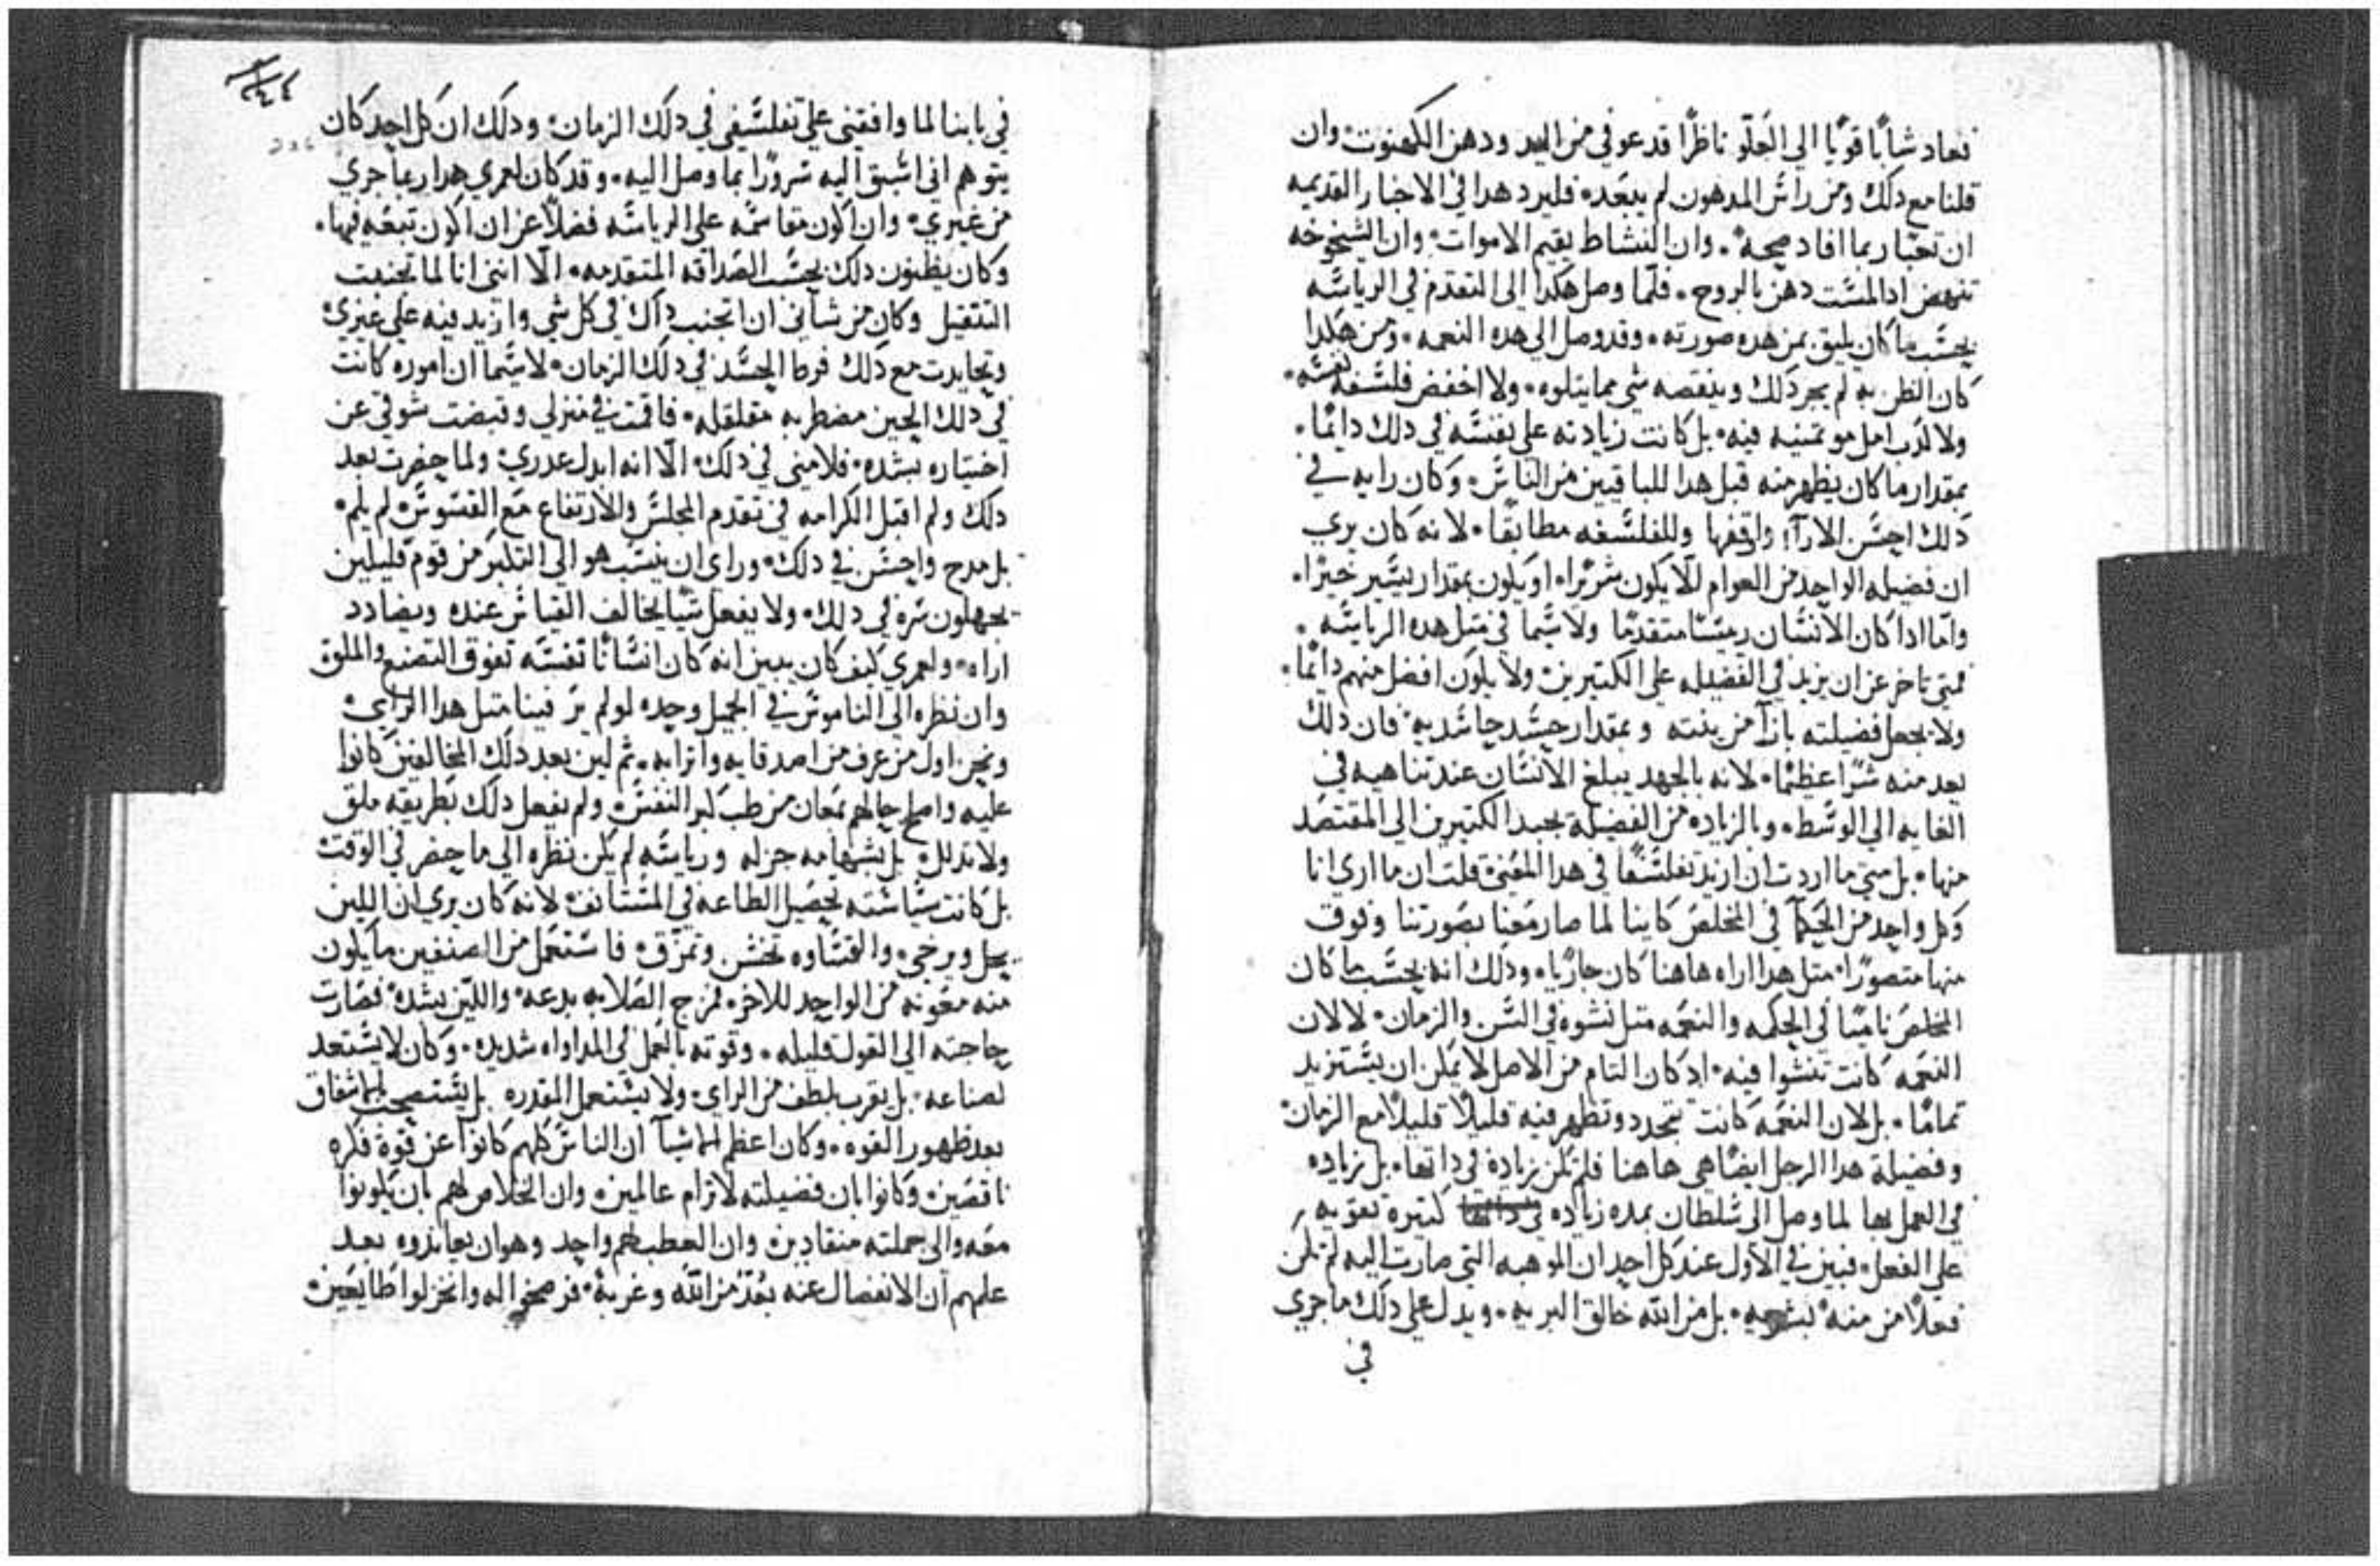 فعاد شابًا قويًا الي العلو ناظرًا قد عوفي من اليد ودهن الكهنوت وان
قلنا مع دلك ومن راس المدهون لم يبعد فليرد هدا في الاخبار القديمه
ان تختبار بما افاد صحه وان النشاط يقيم الاموات وان الشيخوخه
تنهض ادا لمست دهن بالروح فلما وصل هكدا الي التقدم في الرياسه
بحسب ما كان يليق بمن هده صورته وقد وصل الي هده النعمه ومن هكدا
كان الظن به لم يجر دلك وينقصه شي مما يتلوه ولا اخفض فلسفة نفسه
ولا كدب امل موتمنيه فيه بل كانت زيادته علي نفسه في دلك دايمًا
بمقدار ما كان يظهر منه قبل هدا للباقيين من الناس وكان رايه في
دلك احسن الارآ واقفها وللفلسفه مطابقًا لانه كان يري
ان فضيله الواحد من العوام للا يكون شريرًا او يكون بمقدار يسير خيرًا
واما ادا كان الانسان ريسًا متقدمًا ولا سيما في مثل هده الرياسه
فمتي تاخر عن ان يزيد في الفضيله علي الكتيرين ولا يكون افضل منهم دايمًا
ولا يجعل فضيلته بازآ مرتبته وبمقدار حسد حاسديه فان دلك
يعد منه شرًا عظيمًا لانه بالجهد يبلغ الانسان عند تناهيه في
الغايه الي الوسط وبالزياده من الفضيلة يجيد الكتيرين الي المقتصد
منها بل متي ما اردت ان ازيد تفلسفًا في هدا المعني قلت ان ما اري انا
وكل واحد من الحكمآ في المخلص كاينا لما صار معنا بصورتنا وفوق
منها متصورًا متل هدا اراه هاهنا كان جاريًا ودلك انه بحسب ما كان
المخلص ناميًا في الحكمه والنعمه متل نشوه في السن والزمان لا لان
النعمه كانت تنشوا فيه اد كان التام من الاصل لا يمكن ان يستزيد
تمامًا بل لان النعمه كانت تتجدد وتظهر فيه قليلًا قليلًا مع الزمان
وفضيلة هدا الرجل ايضًا هي هاهنا فلم تكن زيادة في داتها بل زياده
في العمل بها لما وصل الي سلطان بمده زياده كتيرة تقويه
علي الفعل فبين في الاول عند كل احد ان الموهبه التي صارت اليه لم تكن
فعلًا من منه بشريه بل من الله خالق البريه ويدل علي دلك ما جري
في
في بابنا لما وافقني علي تفلسفي في دلك الزمان ودلك ان كل احد كان
يتوهم اني اسبق اليه سرورًا بما وصل اليه وقد كان لعمري هدا ربما جري
من غيري وان اكون مقاسمه علي الرياسه فضلًا عن ان اكون تبعه فيها
وكان يظنون دلك بحسب الصداقه المتقدمه الّا انني انا لما تجنبت
التتقيل وكان من شاني ان اتجنب داك في كل شي وازيد فيه علي غيري
وتحايدت مع دلك فرط الحسد في دلك الزمان لا سيما ان اموره كانت
في دلك الحين مضطربه متقلقله فاقمت في منزلي وقبضت شوقي عن
اختياره بشده فلامني في دلك الّا انه ابدل عدري ولما حضرت بعد
دلك ولم اقبل الكرامه في تقدم المجلس والارتفاع مع القسوس لم يلم
بل مدح واحسن في دلك وراي ان ينسب هو الي التكبر من قوم قليلين
يجهلون سره في دلك ولا يفعل شيًا يخالف القياس عنده ويضادد
اراه ولعمري كيف كان يبين انه كان انسانًا نفسه تفوق التصنع والملق
وان نظره الي الناموس في الجميل وحده لو لم ير فينا متل هدا الراي
ونحن اول من عرف من اصدقايه واترابه ثم لين بعد دلك المخالفين كانوا
عليه واصلح حالهم بمعان من طب كبر النفس ولم يفعل دلك بطريقه ملق
ولا تدلل بل بشهامه جزله ورياسه لم يكن نظره الي ما حضر في الوقت
بل كانت سياسته تحصيل الطاعه في المستانف لانه كان يري ان اللين
يحل ويرخي والقساوه تخشن وتمزق فاستعمل من الصنفين ما يكون
منه معونه من الواحد للاخر فمزج الصلابه بدعه واللين بشده فصارت
حاجته الي القول قليله وقوته بالعمل في المداواه شديده وكان لا يستعد
لصناعه بل يقرب بلطف من الراي ولا يستعمل المقدره بل يستصحب الاشفاق
بعد ظهور القوه وكان اعظم الاشيآ ان الناس كلهم كانوا عن قوة فكره
ناقصين وكانوا بان فضيلته لا ترام عالمين وان الخلاص لهم بان يكونوا
معه والي جملته منقادين وان العطب لهم واحد وهو ان يعاندوه بعد
علمهم ان الانفصال عنه بعد من الله وغربة فرضخوا له وانخزلوا طايعين